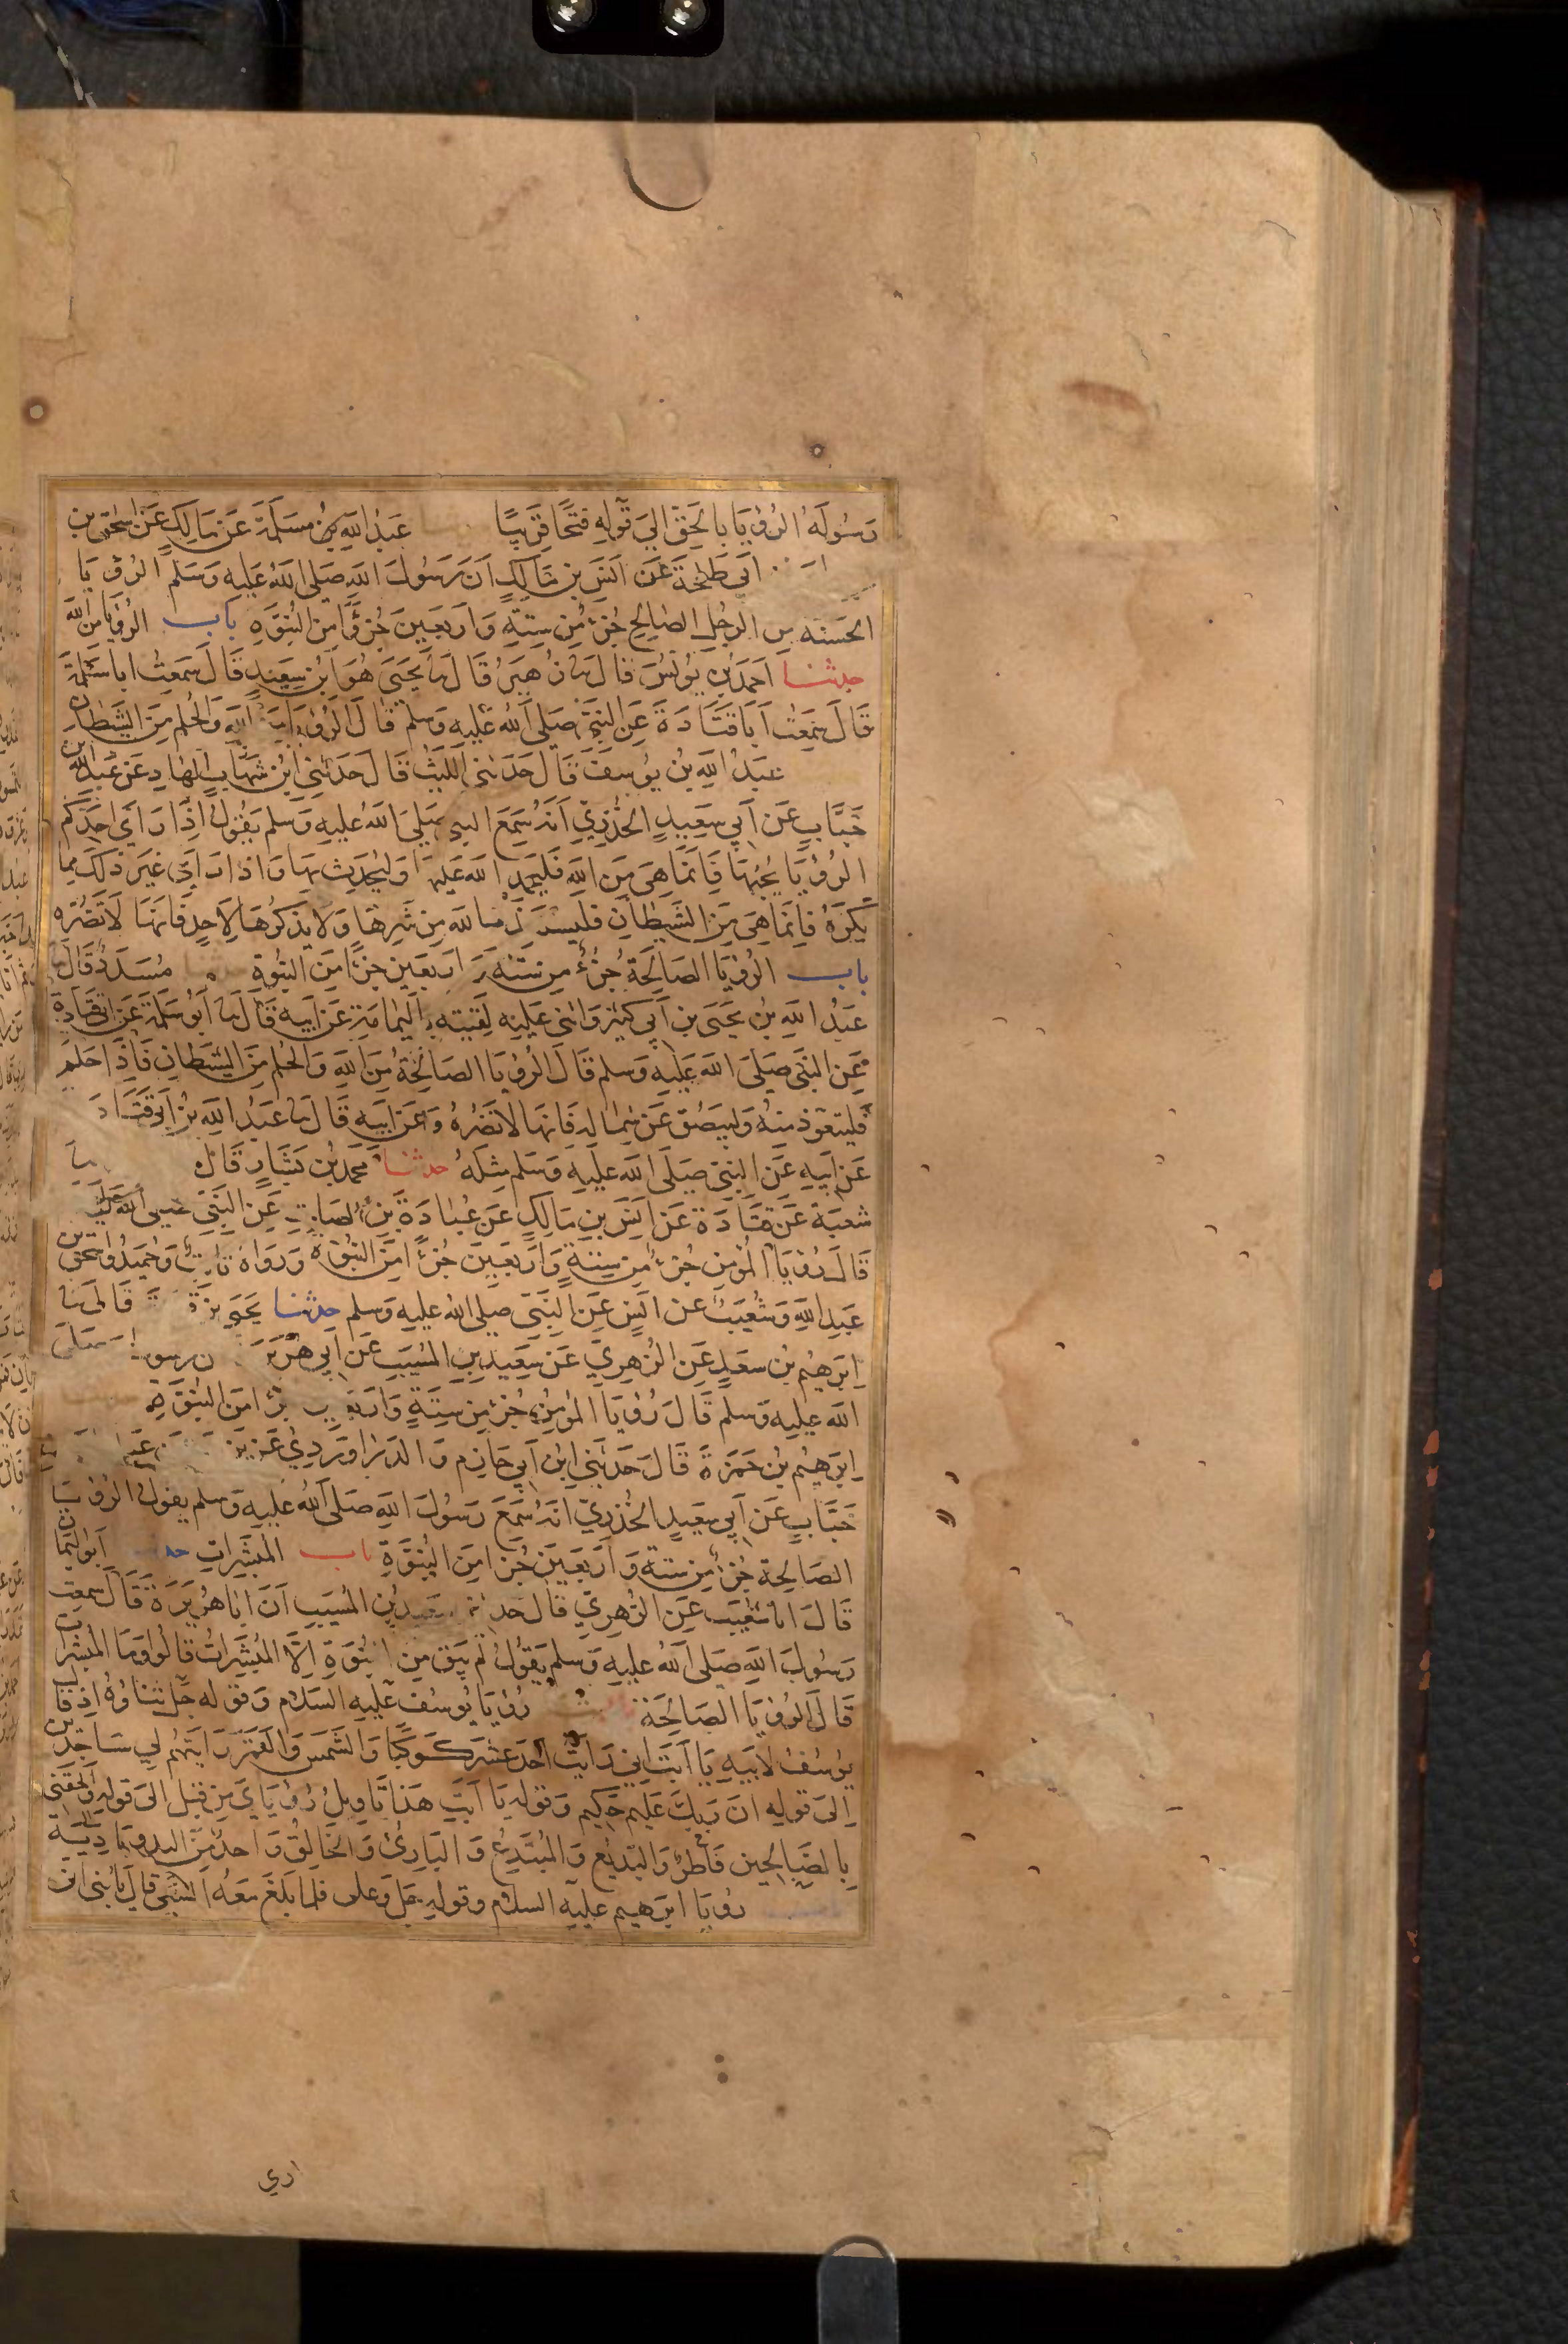 رَسُولَهُ الرُؤيَا بالحَقِّ الىَ قَولِهِ فَتحًا قَرِيبًا عَبدُ اللهِ بنُ مَسلَمَةَ عَن مَالِكٍ عَن اسحٰق بنِ
اَبي طَلحَةَ عَن اَنَسِ بنِ مَالِكٍ اَنَ رَسُولَ اللهِ صَلى اللهُ عَليهِ وَسَلم الرُؤيَا
الحَسَنَه مِن الرَجُلِ الصَالِحِ جُزءٌ مِن سِتَةٍ وَاَربَعِينَ جُزءًا مِنَ النُبُوَّةِ باب الرُؤيَا مِنَ اللهِ
حدثنا اَحمَدُ بن يُونُسَ قَالَ نا زُهَيرُ قَالَ نا يَحيَى هُوَ ابنُ سَعِيدٍ قَالَ سَمعتُ ابا سَلمَةَ
قَالَ سَمِعتُ اَبَا قَتَادَةَ عَن النَبيِّ صَلى اللهُ عَليهِ وَسلم قَالَ الرُؤيا مِنَ اللهِ وَالحُلم مِنَ الشَيطانِ
عَبدُ اللهِ بنُ يُوسِفَ قَالَ حَدَثَني اللَيثُ قَالَ حَدَثَنِي ابنُ شهَابِ الهَادِ عَن عَبدِ اللهِ بن
خَبَّابٍ عَن اَبي سَعِيدٍ الخُدرِيِّ اَنَهُ سَمِعَ النبي صَلىَ اللهُ عَليهِ وَسلم يَقُولُ اِذَا رَاىَ اَحَدَكُم
الرُؤيَا يُحِبُهَا فَاِنَمَا هيَ مِنَ اللهِ فَليَحمَدِ اللهَ عَليهَا وَليُحَدِث بِهَا وَاذا رَاَى غَيرَ ذَلكَ مِما
يَكرَهُ فَاِنَمَا هِيَ مِنَ الشَيطَانِ فَليَستَعِذ باللهِ مِن شَرِهَا وَلَا يَذكُرهَا لِاَحِدٍ فَانَهَا لَا تَضُرُه
باب الرُؤيَا الصَالِحَةُ جُزءٌ مِن سِتَه وَاربَعِين جزءًا مِنَ النُبُوةِ مُسَدَدٌ قَالَ نا
عَبدُ اللهِ بنُ يَحيَى بنِ اَبي كَثِيرٍ وَاثنى عَليهِ لَقِيتِه بِاليَمامَةِ عَن اَبِيهِ قَالَ نا اَبُو سَلَمَةَ عَن ابي قَتَادَةَ
عَن النَبيِّ صَلىَ اللهُ عَليهِ وَسلم قَالَ الرُؤيَا الصَالِحَةُ مِنَ اللهِ وَالحُلم مِنَ الشَيطَانِ فَاِذَا حَلَمَ
فَليَتَعَوَّذ مِنهُ وَليَبصُق عَن شِمالِهِ فَانهَا لَا تَضُرُهُ وَعَن اَبِيهِ قَالَ نا عَبدُ اللهِ بنُ اَبي قَتَادَ
عَن اَبِيهِ عَن النبيِّ صَلَى اللهُ عَليهِ وَسَلم مِثلَهُ حدثنا مُحَمدُ بن بَشَارٍ قَالَ
شعبَة عَن قَتَادَةَ عَن اَنَسِ بنِ مَالِكٍ عَن عُبَادَةَ بنِ الصَامِتِ عَنِ النَبيِّ صلى اللهُ عليه
قَالَ رُؤيَا المُؤمِنِ جُزءٌ مِن سِتَةٍ وَاَربَعِينَ جُزءًا مِنَ النُبُوَةِ وَرَوَاهُ ثَابِتٌ وَحُمَيدٌ وَاسحٰق بن
عَبدِ اللهِ وَشُعَيبٌ عن اَنَسٍ عَنِ النَبيِّ صلى الله عَليه وَسلم حدثنا يَحيَى بن قَزعَةَ قَالَ نا
اِبرَهِيمُ بن سَعدٍ عَن الزُهرِيِّ عَن سَعِيدِ بنِ المُسَيَبِ عَن اَبي هُرَيرَ ن رسول صَلى
اللهُ عليهِ وَسلم قَالَ رُؤيَا المُؤمِنِ جُزءٌ مِن سِتَةٍ وَاَربَعِين جزءًا مِنَ النُبُوَةِ
اِبرَهِيمُ بنُ حَمزَةَ قَالَ حَدَثَنِي ابن اَبي حَازِمٍ وَالدَرَاوَردِيُ عَن يَزِ
خَبَّابٍ عَن اَبي سَعِيدٍ الخُدرِيِّ اَنَهُ سَمِعَ رَسُولَ اللهِ صَلَى اللهُ عَليهِ وَسلم يَقُولُ الرُؤيَا
الصَالِحَة جُزءٌ مِن سِتَةٍ وَاَربَعِينَ جُزءًا مِنَ النُبُوَّةِ باب المُبَشِّرَاتِ حد اَبو اليَمانِ
قَالَ انا شُعَيبٌ عَن الزُهرِيِّ قَالَ حدثني سَعِيدُ بنُ المُسَيَبِ اَنَ ابَا هُرَيرَةَ قَالَ سَمِعت
رَسُولَ اللهِ صَلى اللهُ عَليهِ وَسلم يَقُولُ لَم يَبقَ مِنَ النبُوَةِ اِلَّا المُبَشِّرَاتُ قَالُوا وَمَا المُبَشِّرَات
قَالَ الرُؤيَا الصَالِحَة رُؤيَا يُوسُف عَليهِ السَلام وَقَولِه جَلَ ثَناؤُهُ اِذ قَالَ
يُوسُفُ لاَبِيهِ يَا اَبَتِ اِني رَاَيتُ اَحَدَ عَشَرَ كَوكَبًا وَالشَمسَ وَالقَمَرَ رَاَيتَهُم لِي سَاجِدِين
اِلىَ قَولِهِ انَ رَبَكَ عَلِيم حَكيم وَقَولِهِ يَا اَبَتِ هَذَا تَاوِيلُ رُؤيَايَ مِن قَبل الىَ قَولِهِ وَالحِقنِي
بِالصَالِحِين فَاطِرٌ وَالبَدِيع وَالمُبتَدِعُ وَالبَارِئُ وَالخَالِقُ وَاحِدٌ مِنَ البدوِ بَادِيَة
رُؤيَا ابرَهِيم عليهِ السلام وَقولِه جَل وَعلى فَلما بَلَغَ مَعَهُ السَعي قَالَ يا بُنَي اني
اري